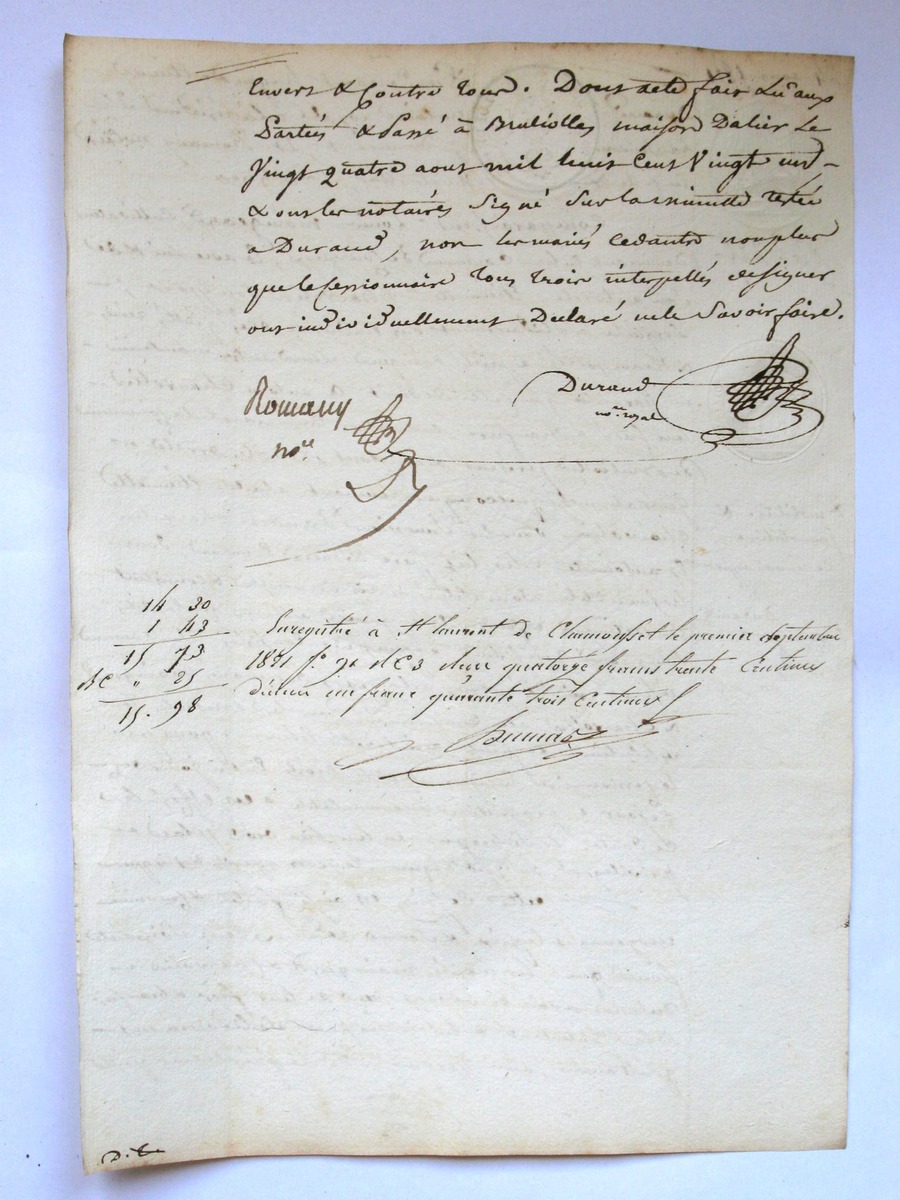 Envers & Contre tous. Dont acte fait Lu aux
Parties & Passé à Brullolles maison Dalier Le
Vingt quatre aout mil huit Cent Vingt un -
& ont les notaires Signé Sur la minutte restée
a Durand, non les mariés Cedants non plus
que le Cessionnaire tous trois interpellés de signer
ont individuellement Déclaré ne le Savoir faire.
Durand
nore. royal
Romany
nore
14 30
1 43
15 73
25
15. 98
Enregistré à St. laurent de Chamousset le premier Septembre
1821 fo. 91 R C 3 reçu quatorze francs trente Centimes
Décime un franc quarante trois Centimes
Dumas